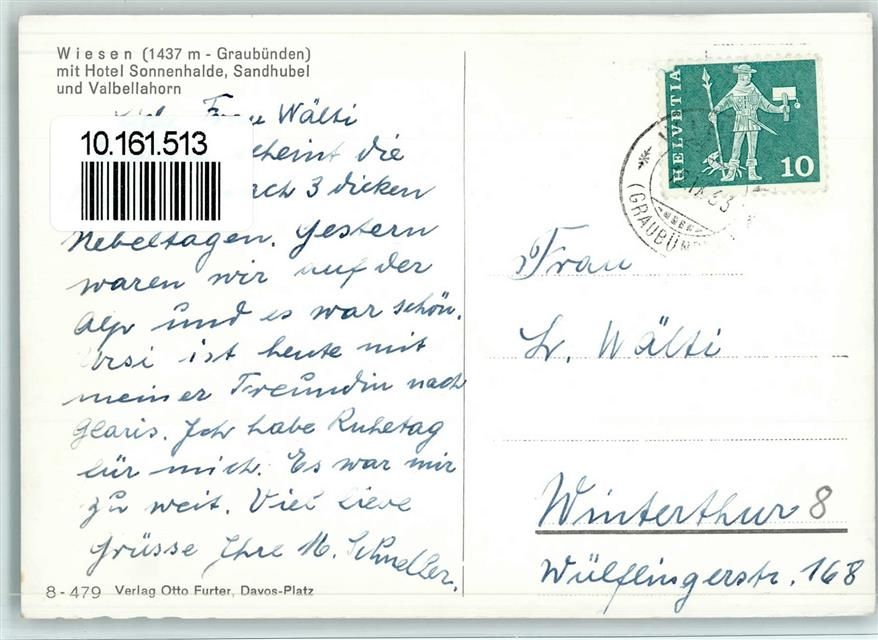 Wiesen (1437 m - Graubünden)
mit Hotel Sonnenhalde, Sandhubel
und Valbellahorn
Frau Wälti
10.161.513
scheint die
3 dicken
Nebeltagen. Gestern
waren wir auf der
Alp und es war schön.
Ursi ist heute mit
meiner Freundin nach
Glaris. Ich habe Ruhetag
für mich. Es war mir
zu weit. Viel liebe
Grüsse Ihre M. Schneller.
8-479 Verlag Otto Furter, Davos-Platz
HELVETIA
10
(GRAUBÜN
Frau
Wälti
Winterthur 8
Wülflingerstr. 168